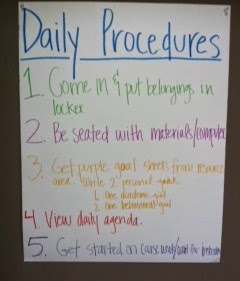 Daily Procedures
1. Come in & put belongings in
locker.
2. Be seated with materials/computer
3. Get purple goal sheets from resource
area. Write 2 personal goals.
1. One academic goal
2. One behavioral goal
4. View daily agenda.
5. Get started on coursework/wait for